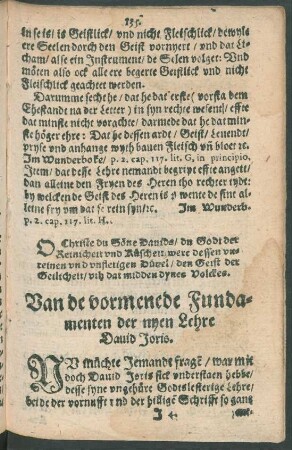 135.
in se is/ is Geistlick/ vnd nicht Fleischlick/ dewyls
ere Seelen dorch den Geist vornyert / vnd dat Li-
cham/ alse ein Instrument/ de Selen volget: Vnd
möten also ock alle ere begerte Geistlick vnd nicht
Fleischlick geachtet werden.
Darumme secht he / dat he dat erste (vor sta dem
Ehestandt na der Letter) in syn rechte wesent/ effte
dat minste nicht vorachte/ darmede dat he dat min-
ste höger ehre: Dat he dessen ardt/ Geist/ Leuendt/
pryse vnd anhange wyth bauen Fleisch vñ bloet ꝛc.
Im Wunderboke/ p. 2. cap. 117. lit. G, in principio.
Item/ dat desse Lehre nemandt begrypt effte angeit/
dan alleine den Fryen des Heren tho rechter tydt:
by welcken de Geist des Heren is / wente de sine al-
leine fry vm dat se rein syn/ꝛc. Im Wunderb.
p. 2. cap. 117. lit. H.
O Christe du Söne Dauids/ du Godt der
Reinicheit vnd Küscheit/ were dessen vn-
reinen vnd vnfletigen Düvel/ den Geist der
Geilicheit/ vth dat midden dynes Volckes.
Van de vormenede Funda-
menten der nyen Lehre
Dauid Joris.
NV möchte Jemandt fragẽ/ war mit
doch Dauid Joris sick vnderstaen hebbe/
desse syne vngehüre Godtslesterige Lehre/
beide der vornufft vnd der hilligẽ Schrifft so gantz
J 4